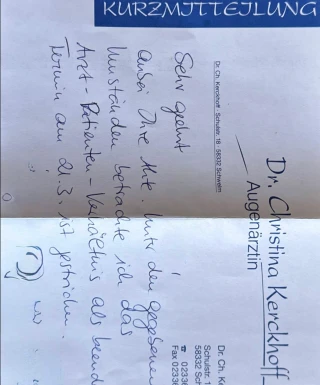 KURZMITTEILUNG
Dr. Christina Kerckhoff
Augenärztin
Dr. Ch. Kerckhoff · Schulstr. 18 · 58332 Schwelm
Dr. Ch. Ke
Schulstr. 1
58332 Sch
☎ 0233
Fax 0233
Sehr geehrt
anbei Ihre Akte. Unter den gegebenen
Umständen betrachte ich das
Arzt-Patienten-Verhältnis als beend
Termin am 21.3. ist gestrichen.